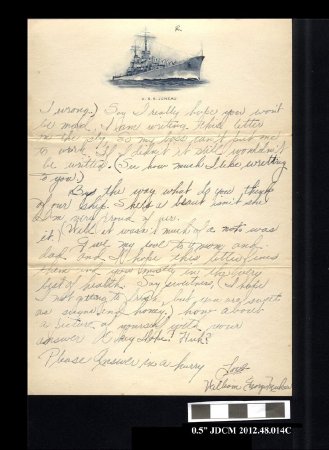 2.
U.S.S. JUNEAU
I wrong.) Say I really hope you wont
be mad. I am writing this letter
in
to work. If I didn't it still wouldn't
be written. (See how much I like writing
to you.)
By the way what do you think
of our ship. She's a beaut isn't she
I am very proud of
it. (Well it wasn't much of a note was
Give my love to mom and
dad and I hope this letter finds
them and you mostly in the very
best of health. Say sweetness, (I hope
I not getting to fresh, but you are sweet
as sugar and honey.) how about
a picture of yourself with your
answer Huh?
Please Answer in a hurry
Love
William
0.5" JDCM 2012.48.014C